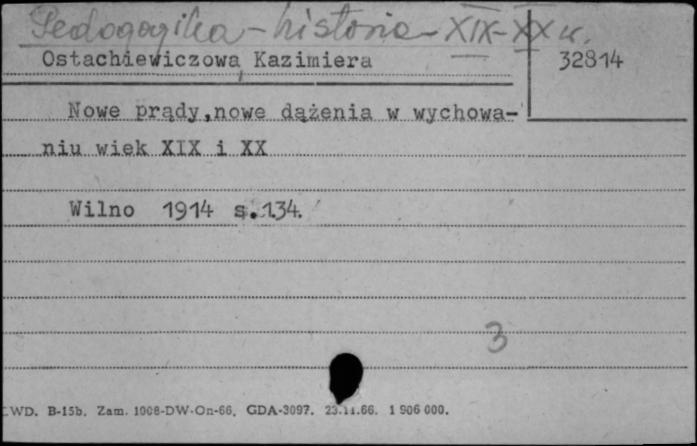 Pedagogika - historia - XIX-XX w.
Ostachiewiczowa, Kazimiera
32814
Nowe prądy, nowe dążenia w wychowa-
niu wiek XIX i XX
Wilno 1914 s. 134.
3
LWD. B-15b. Zam. 1008-DW-On-66. GDA-3097. 23.11.66. 1 906 000.